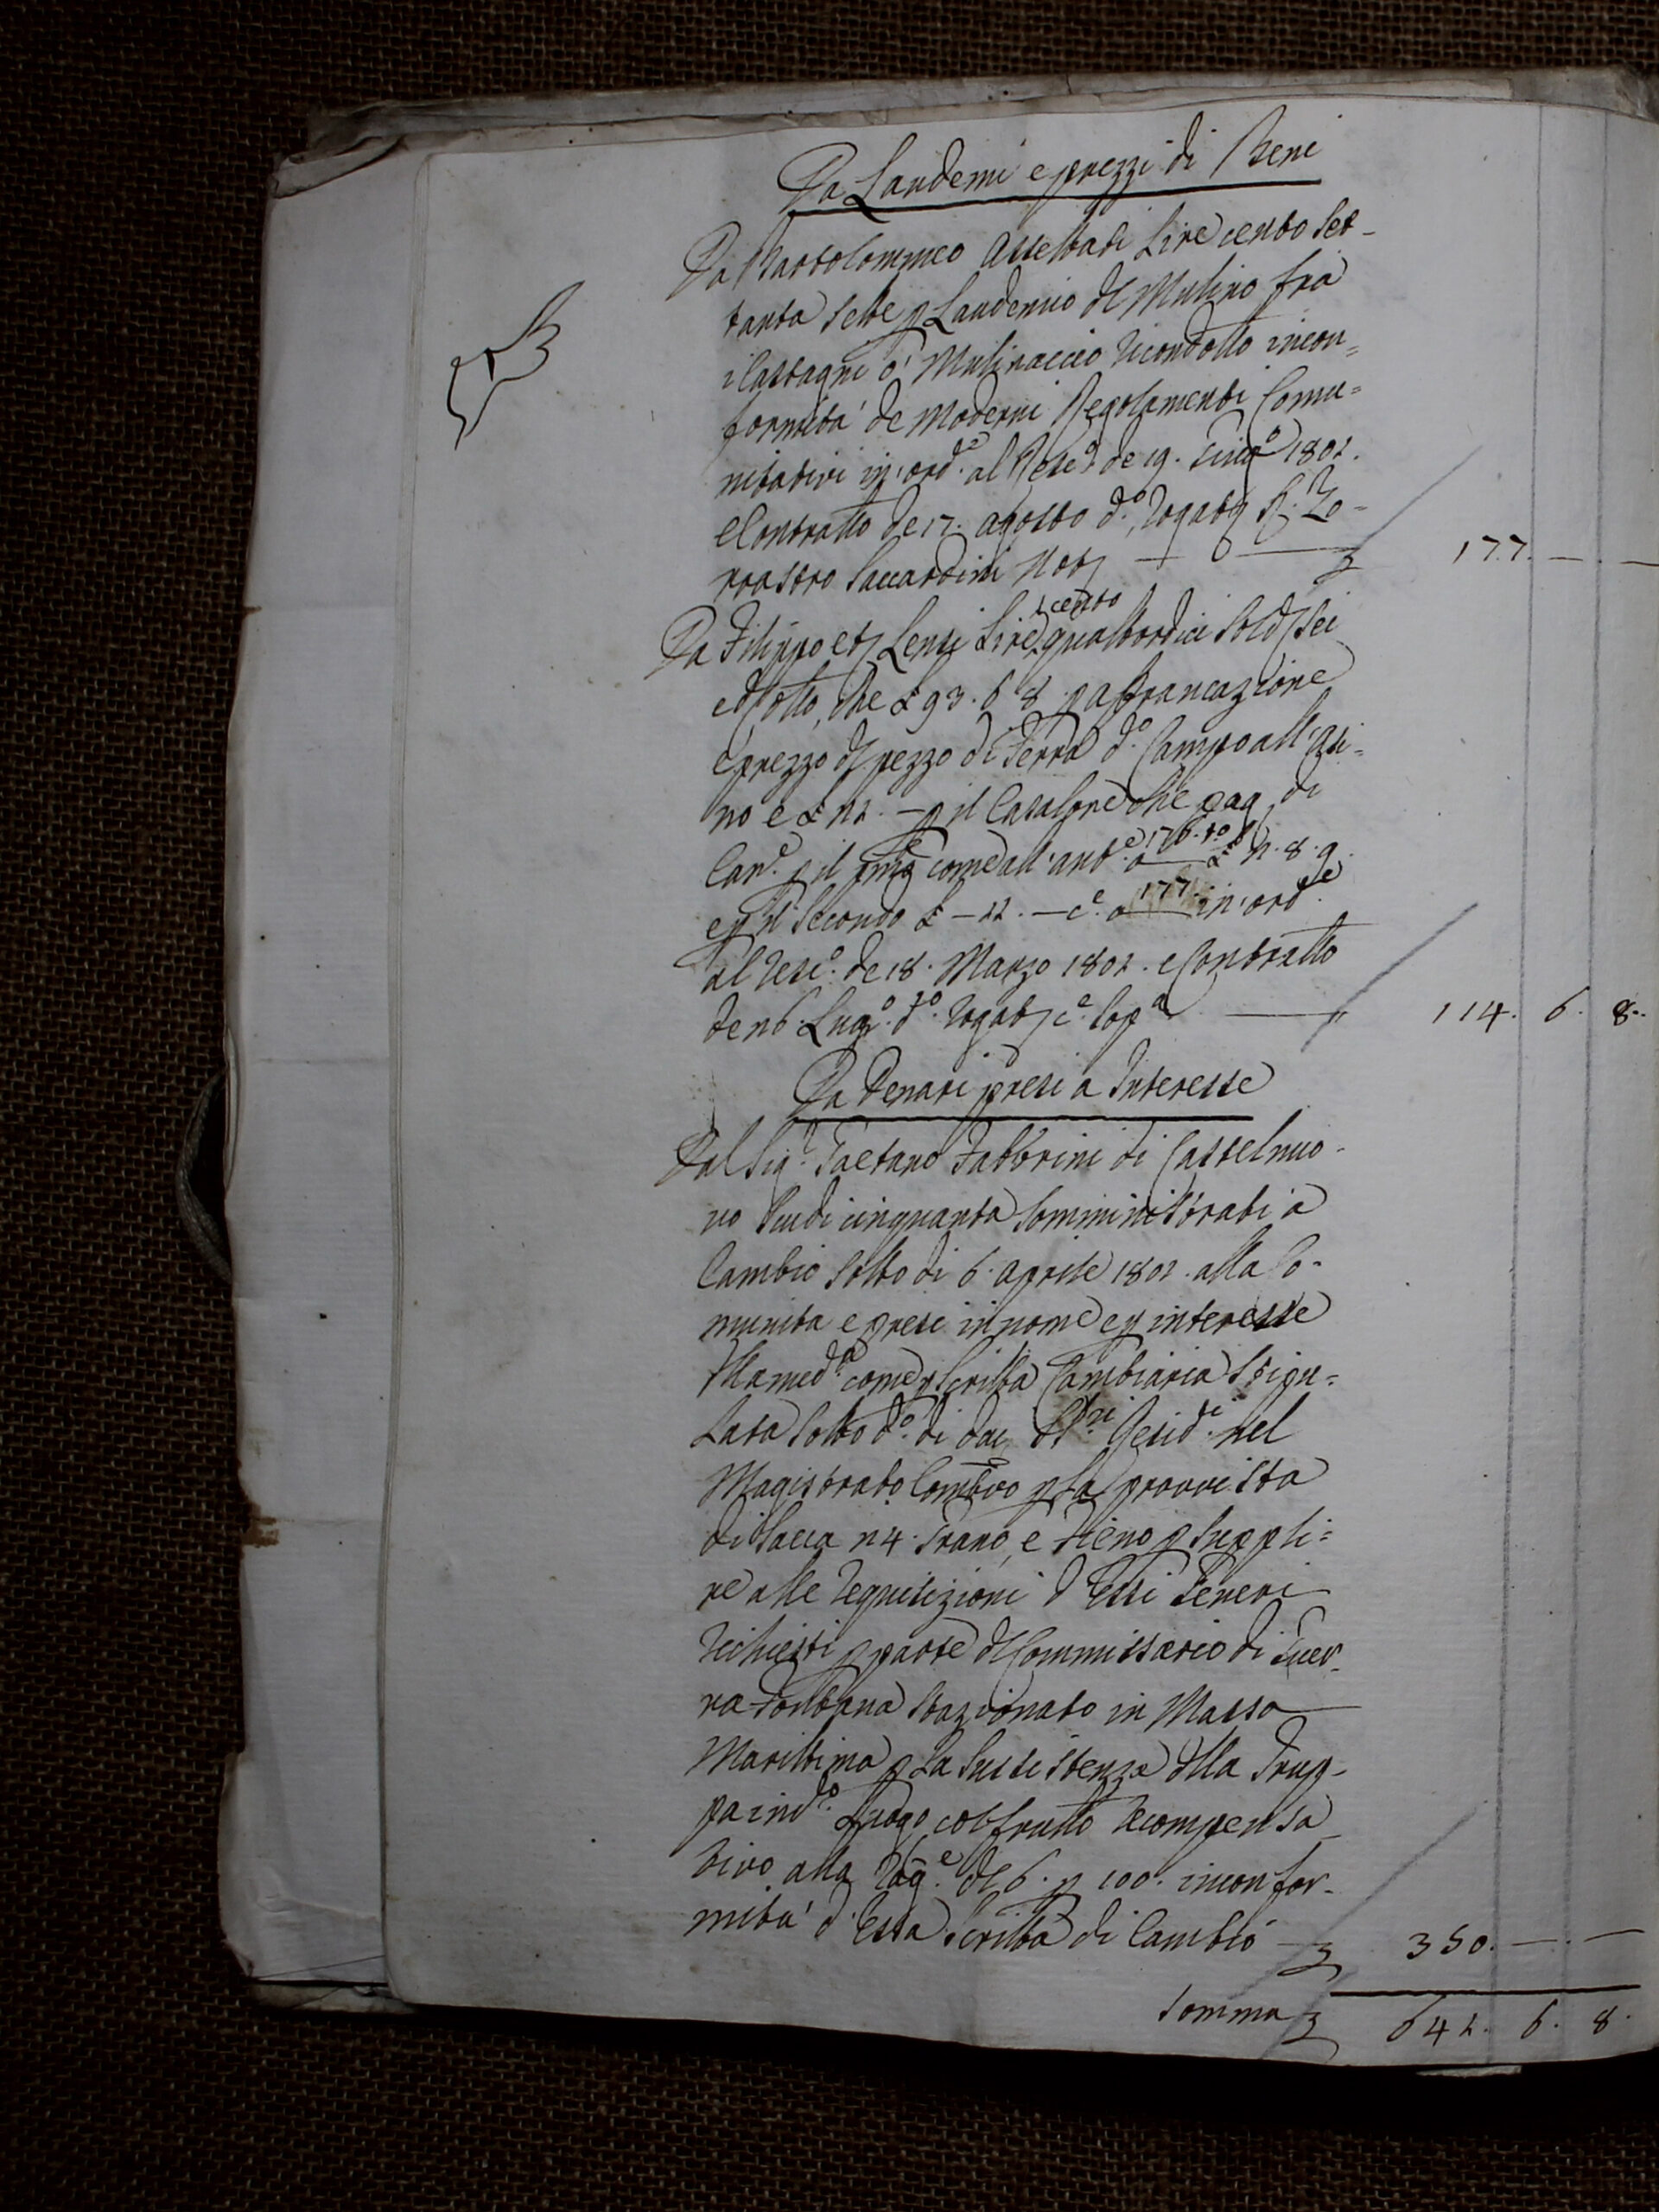 Da Laudemi e prezzi di Beni
Da Bartolommeo Assettati Lire cento Set-
tanta sette p Laudemio del Mulino fra
i Castagni o' Mulinaccio ricondotto incon=
formità de moderni Regolamenti Comu=
nitativi in ord.e al Resc.o de 19. Giug.o 1802.
e Contratto de 17. agosto d.o, rogato
Saccardini 177. — . —
Da Filippo Lensi Lire cento quattordici Soldi Sei
ed otto, che £ 93. 6 8 p affrancazione
e prezzo del pezzo di Terra d.o Campo all'Asi=
no e £ 21. — p il Casalone che pag. di
Can.e p il pmo come all'ant.e a 176. t.o £ 2. 8. 9.
e p il Secondo £ — 12. — c.e a 177. in ord.e
al resc.o de 18. Marzo 1802. e Contratto
de 26. Lug.o d.o rogato c.e Sop.a 114. 6. 8.
Da Denari presi a Interesse
Dal Sig.r Gaetano Fabbrini di Castelnuo-
vo Scudi cinquanta Somministrati a
Cambio Sotto di 6. aprile 1802. alla Co-
munita e presi in nome e p interesse
della med.a come p Scritta Cambiaria Stipu=
lata Sotto d.o di dai SS.ri Resid.ti nel
Magistrato Com.tivo p la provvista
di Sacca n 4. Grano, e Fieno p Suppli=
re alle requisizioni d'Essi Generi
richiesti p parte del Commissario di Guer-
ra Fontana Stazionato in Massa
Marittima p la Sussistenza della Trup-
pa in d.o Luogo col frutto recompensa-
tivo alla rag.e del 6. p 100. in confor-
mita' d'Essa Scritta di Cambio 350. — . —
Somma 642. 6. 8.